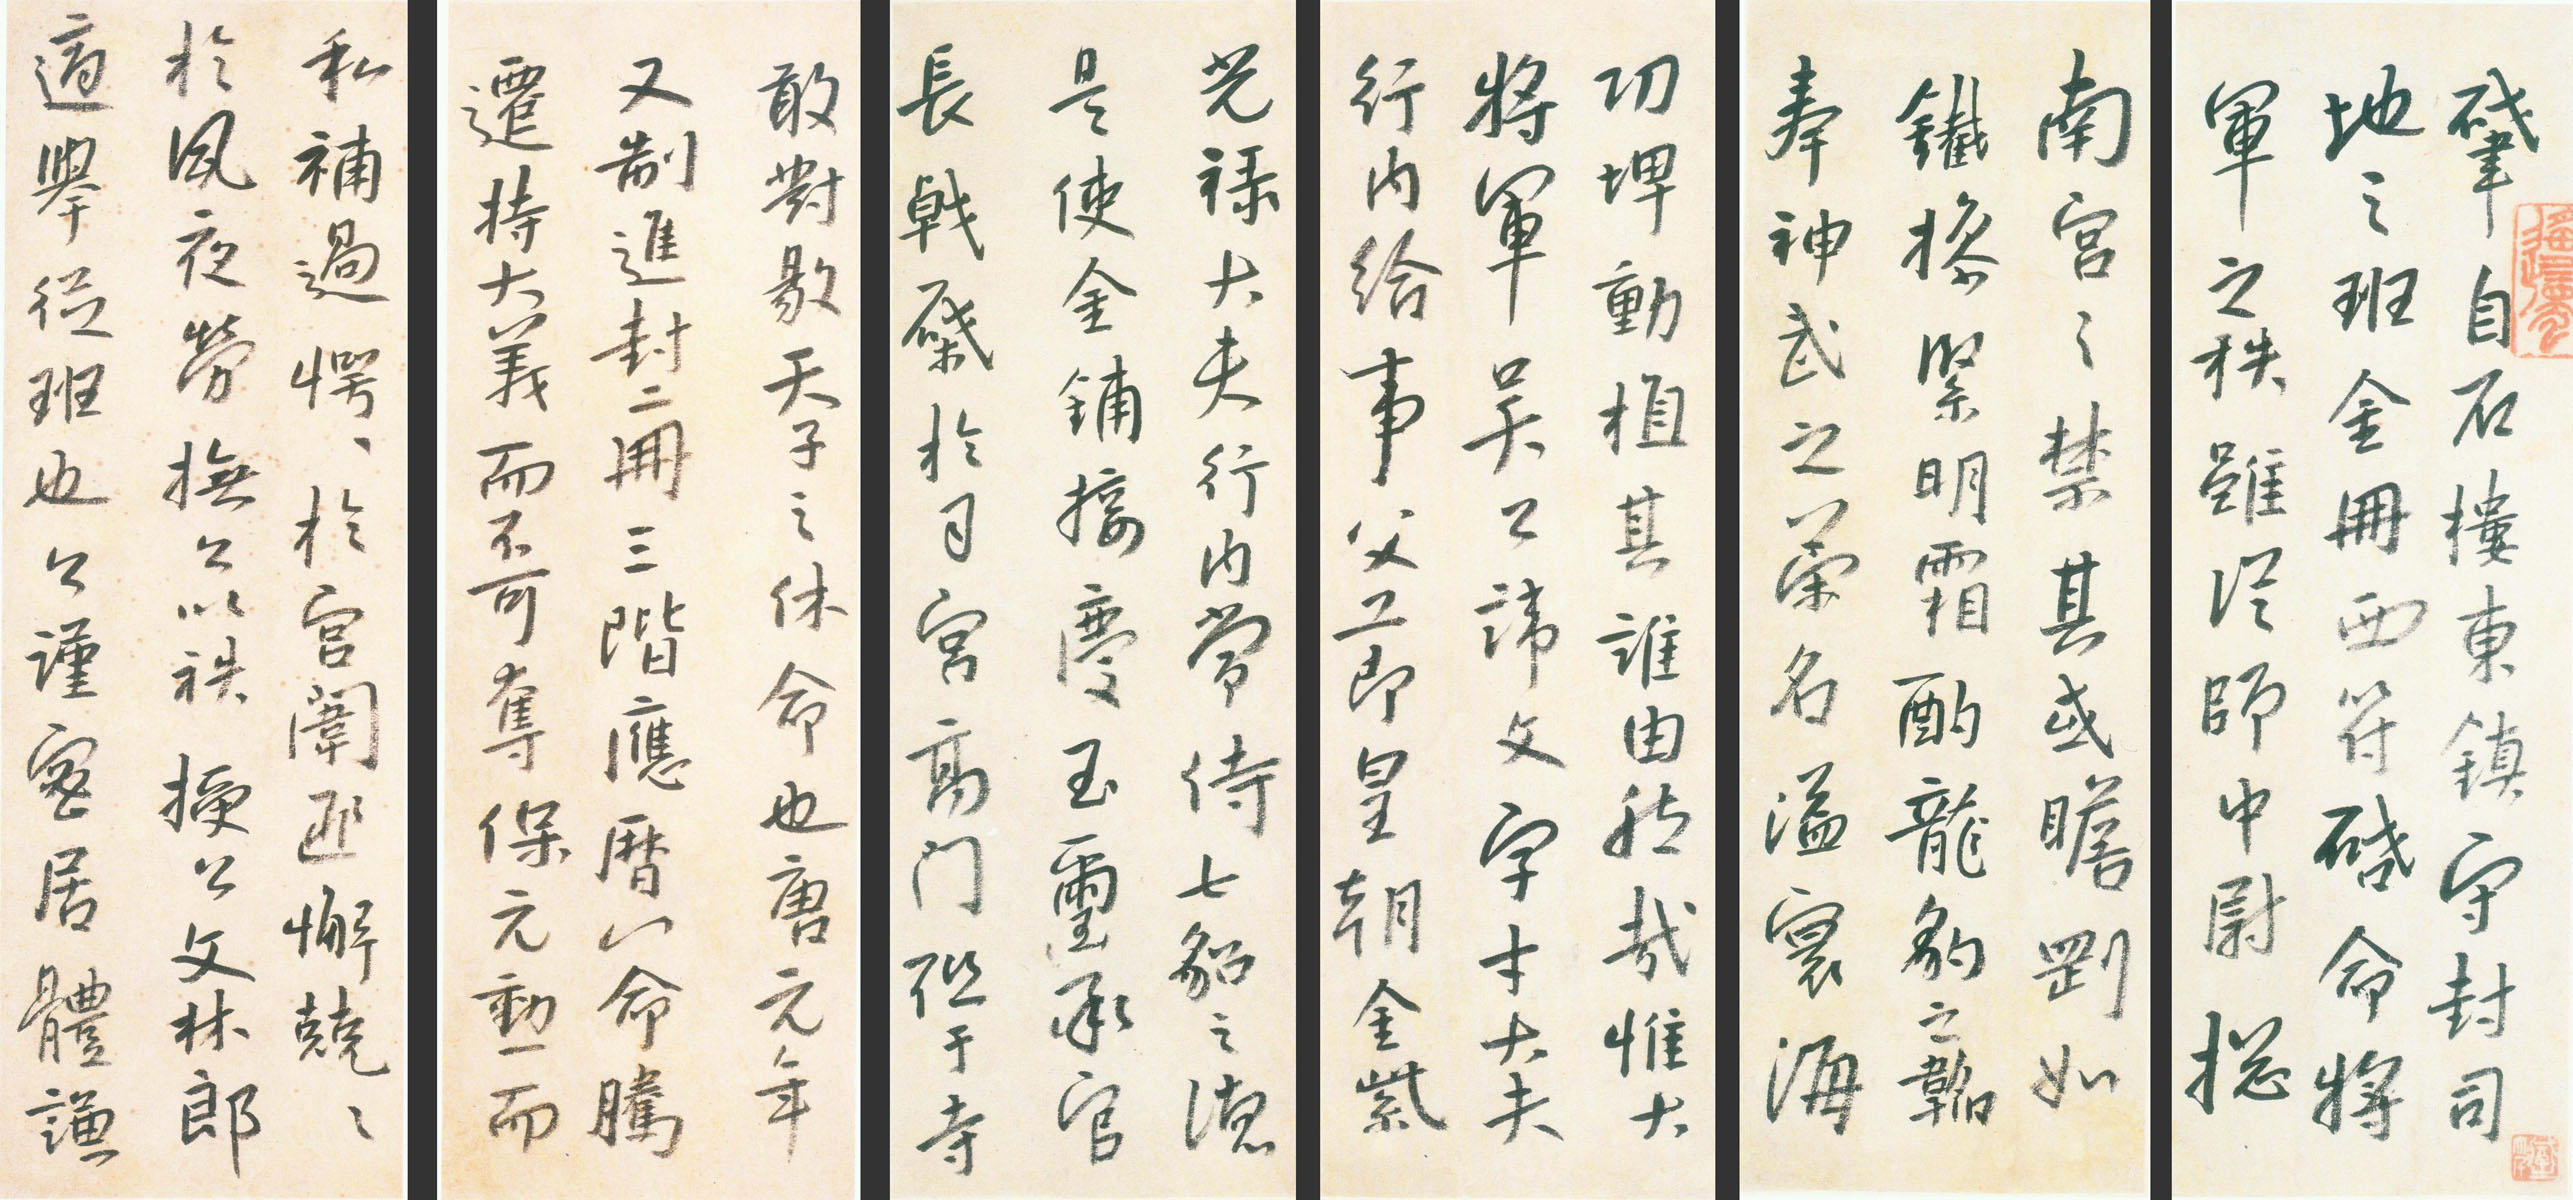 肇自石樓東鎮守封司
地之班金冊西符啓命將
軍之秩雖從師中尉摠
南宮之禁其或瞻劉如
鐵操緊明霜酌龍豹之韜
奉神武之榮名溢寰海
功埤動植其誰由然哉惟大
將軍吳公諱文字才大夫
行內給事父公即皇朝金紫
光祿大夫行內常侍七貂之德
是使金鋪接慶玉璽承官
長戟棨於司宮高門祉于寺
敢對敭天子之休命也唐元年
又制進封二冊三階應曆山命騰
遷持大義而不可奪保元勳而
私補過愕々於宮闈匪懈兢々
於夙夜勞撫公以袟授公文林郎
適舉從班也公謹密居體謙